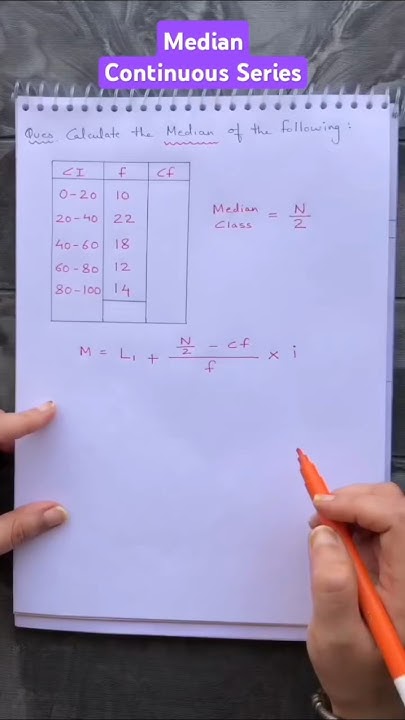 Median
Continuous Series
Ques. Calculate the Median of the following:
CI f Cf
0-20 10
20-40 22
40-60 18
60-80 12
80-100 14
Median Class = N/2
M = L₁ + (N/2 - cf)/f × i